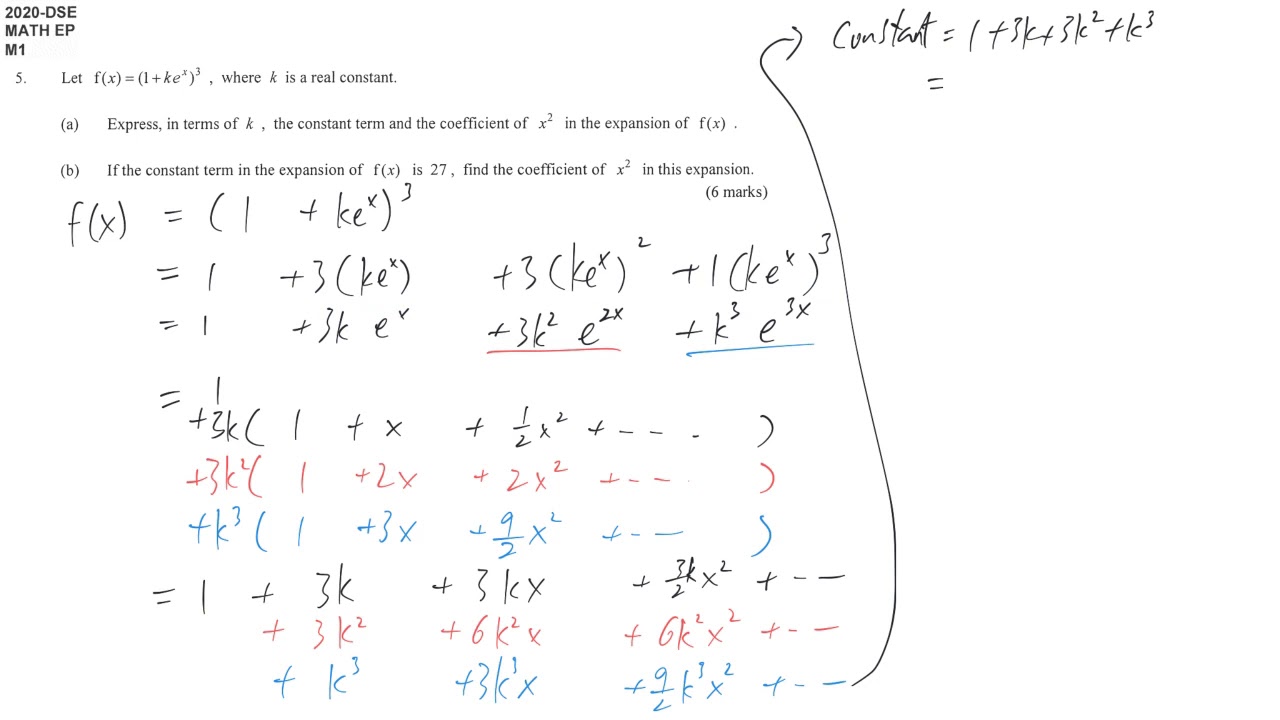 2020-DSE
MATH EP
M1
5. Let f(x) = (1 + keˣ)³ , where k is a real constant.
(a) Express, in terms of k , the constant term and the coefficient of x² in the expansion of f(x) .
(b) If the constant term in the expansion of f(x) is 27 , find the coefficient of x² in this expansion.
(6 marks)
f(x) = (1 + keˣ)³
= 1 +3(keˣ) +3(keˣ)² +1(keˣ)³
= 1 +3k eˣ +3k² e²ˣ +k³ e³ˣ
= 1
+3k( 1 + x + 1/2 x² + -- - )
+3k²( 1 +2x + 2x² + -- - )
+k³ ( 1 +3x + 9/2 x² + -- )
= 1 + 3k + 3kx + 3k/2 x² + --
+ 3k² + 6k²x + 6k²x² + --
+ k³ +3k³x + 9/2 k³x² + --
Constant = 1 +3k+3k²+k³
=